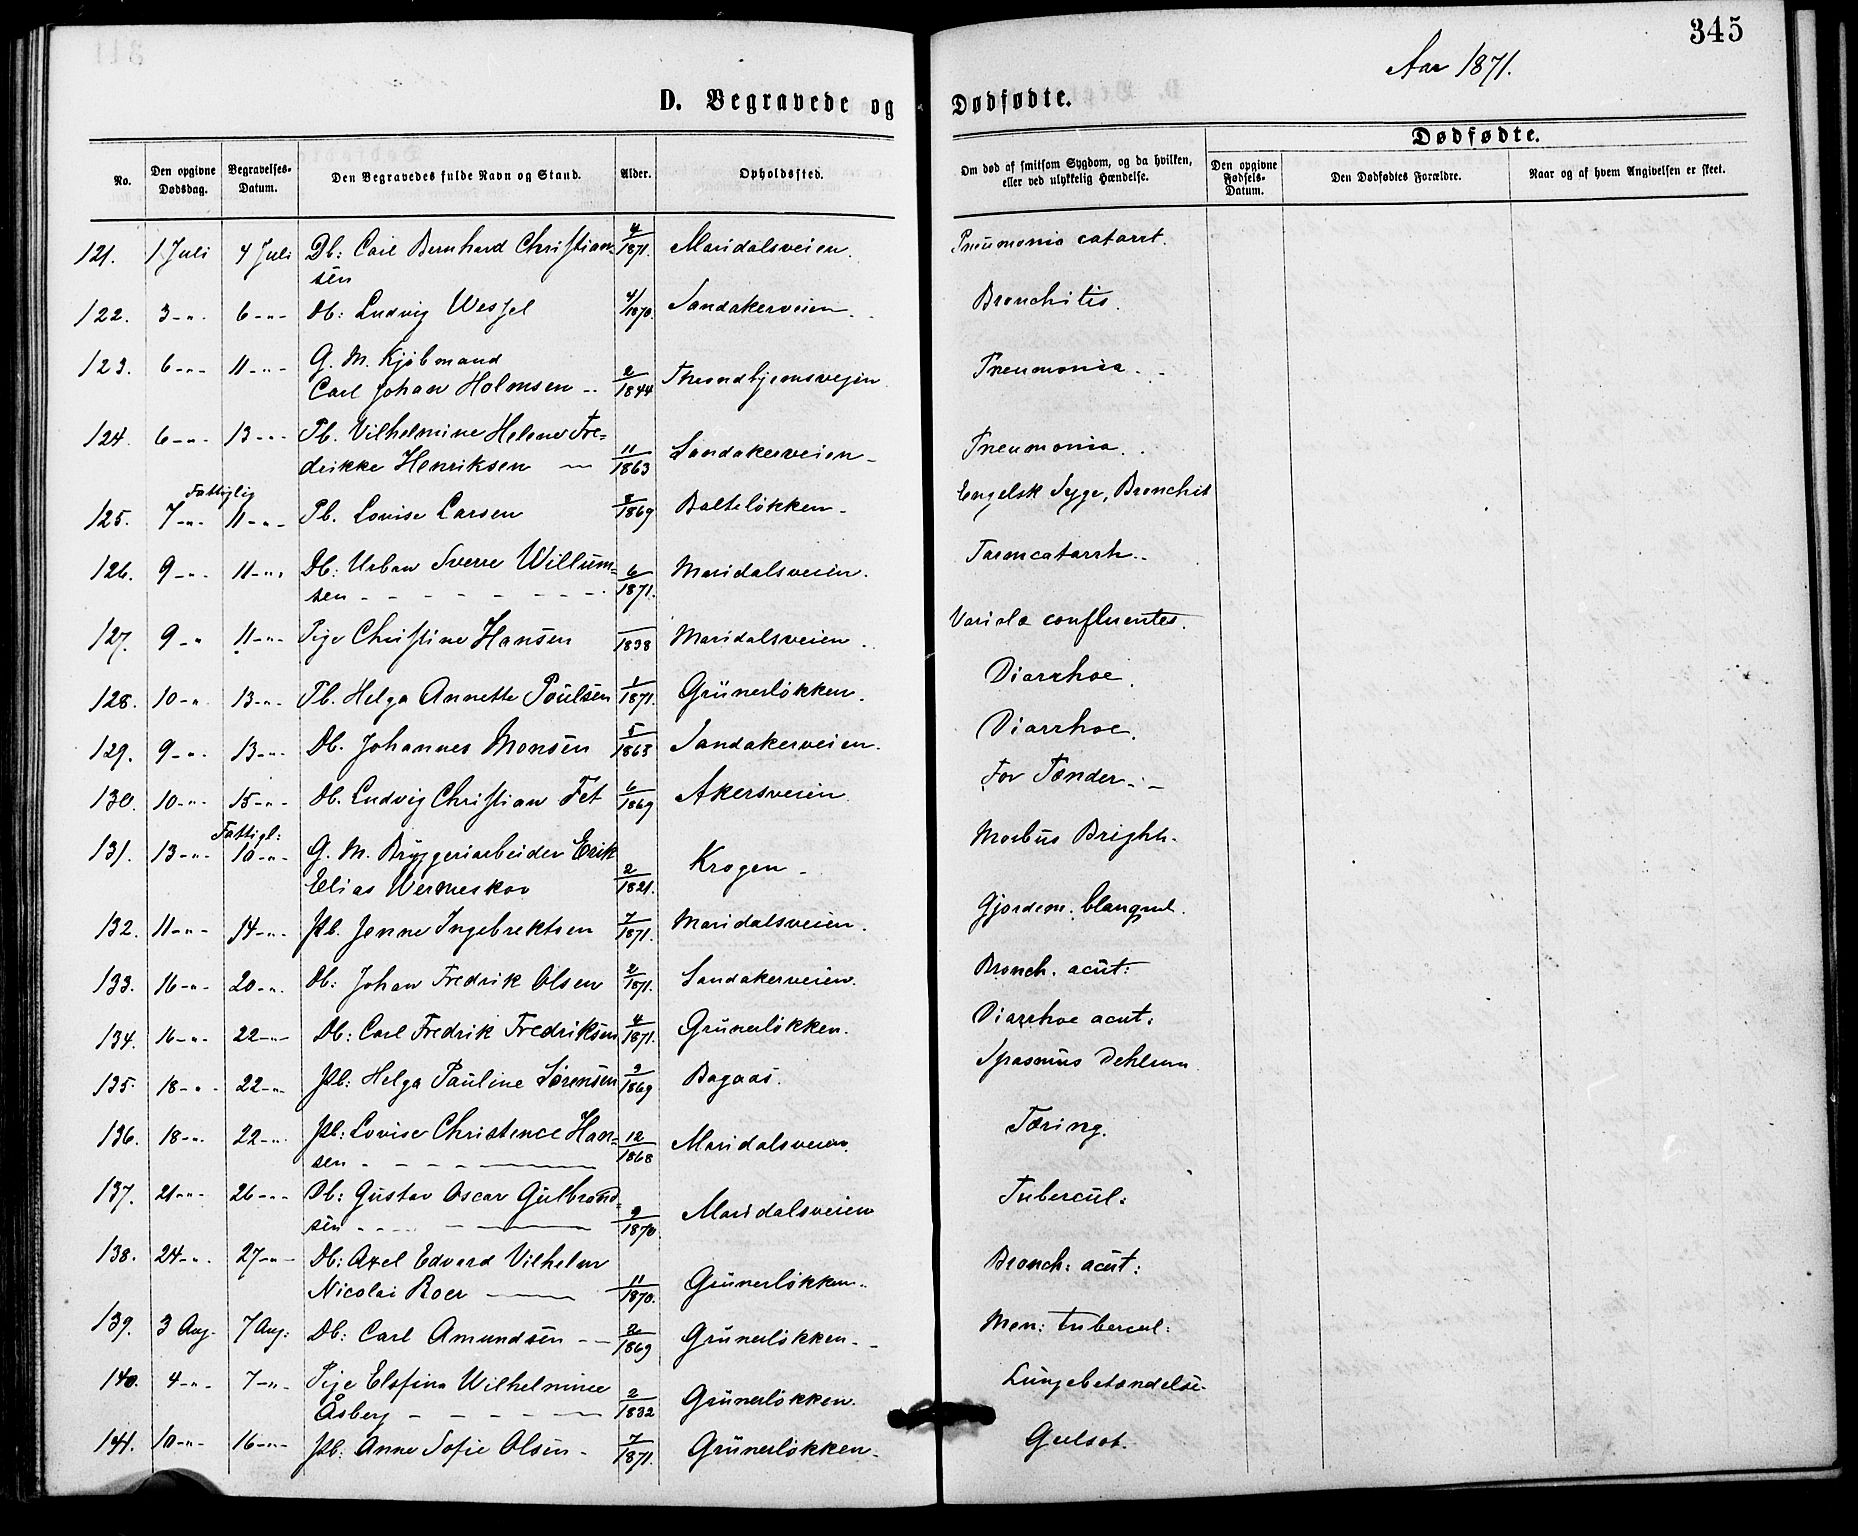 345
Aar 1871.
D. Begravede og Dødfødte.
No.
Den opgivne Dødsdag.
Begravelses-Datum.
Den Begravedes fulde Navn og Stand.
Alder.
Opholdssted.
Om død af smitsom Sygdom, og da hvilken, eller ved ulykkelig Hændelse.
Dødfødte.
Den opgivne Fødsels-Datum.
Den Dødfødtes Forældre.
Naar og af hvem Angivelsen er skeet.
121. 1 Juli 4 Juli Db: Carl Bernhard Christian= 4/1871. Maridalsveien. Pneumonia catarrt.
sen
122. 3-"- 6-"- Db: Ludvig Wessel 4/1870. Sandakerveien. Bronchitis.
123. 6-"- 11-"- G. M. Kjøbmand
Carl Johan Holmsen - 2/1844 Throndhjemsveien. Pneumonia.
124. 6-"- 13-"- Pb. Vilhelmine Helene Fre=
drikke Henriksen - 11/1863 Sandakerveien - Pneumonia.
Fattiglig
125. 7-"- 11-"- Pb. Lovise Larsen /1869 Balteløkken - Engelsk Syge, Bronchit
126. 9-"- 11-"- Db: Urban Sverre Willum= 6/1871. Maridalsveien. Tarmcatarrh.
sen - - - -
127. 9-" 11-"- Pige Christine Hansen 1838 Maridalsveien. Variola confluentes.
128. 10-"- 13-"- Pb. Helga Annette Poulsen 1/1871. Grünerløkken. Diarrhoe.
129. 9-"- 13-"- Db. Johannes Monsen 5/1863 Sandakerveien. Diarrhoe.
130. 10-"- 15-"- Db. Ludvig Christian Fet 6/1869 Akersveien. For Tænder.
Fattigl:
131. 13-"- 10-"- G. M. Bryggeriarbeider Erik Morbus Brighti.
Elias Wermeskov 2/1821. Krogen -
132. 11-"- 14-"- Pb. Jenne Ingebrektsen 7/1871. Maridalsveien. Gjordem.
133. 16-"- 20-"- Db: Johan Fredrik Olsen 2/1871. Sandakerveien. Bronch. acut:
134. 16-"- 22-"- Db: Carl Fredrik Fredriksen 4/1871. Grünerløkken. Diarrhoe acut:
135. 18-"- 22-"- Pb: Helga Pauline Sørensen /1869 Bagaas. Spasmus
136. 18-"- 22-"- Pb: Lovise Christence Han= 12/1868 Maridalsveien. Tæring.
sen - - -
137. 21-"- 26-"- Db: Gustav Oscar Gulbrand= Tubercul:
sen - - - 9/1870 Maridalsveien
138. 24-"- 27-"- Db: Axel Edvard Vilhelm Bronch: acut:
Nicolai Roer - 11/1870. Grünerløkken.
139. 3 Aug. 7 Aug: Db: Carl Amundsen - 2/1869 Grünerløkken - Men: tubercul:
140. 4-"- 7-"- Pige Elofina Wilhelmine Lungebetændelse.
Åsberg - - - 2/1832 Grünerløkken.
141. 10-"- 16-"- Pb: Anne Sofie Olsen - 7/1871. Grünerløkken - Gulsot.